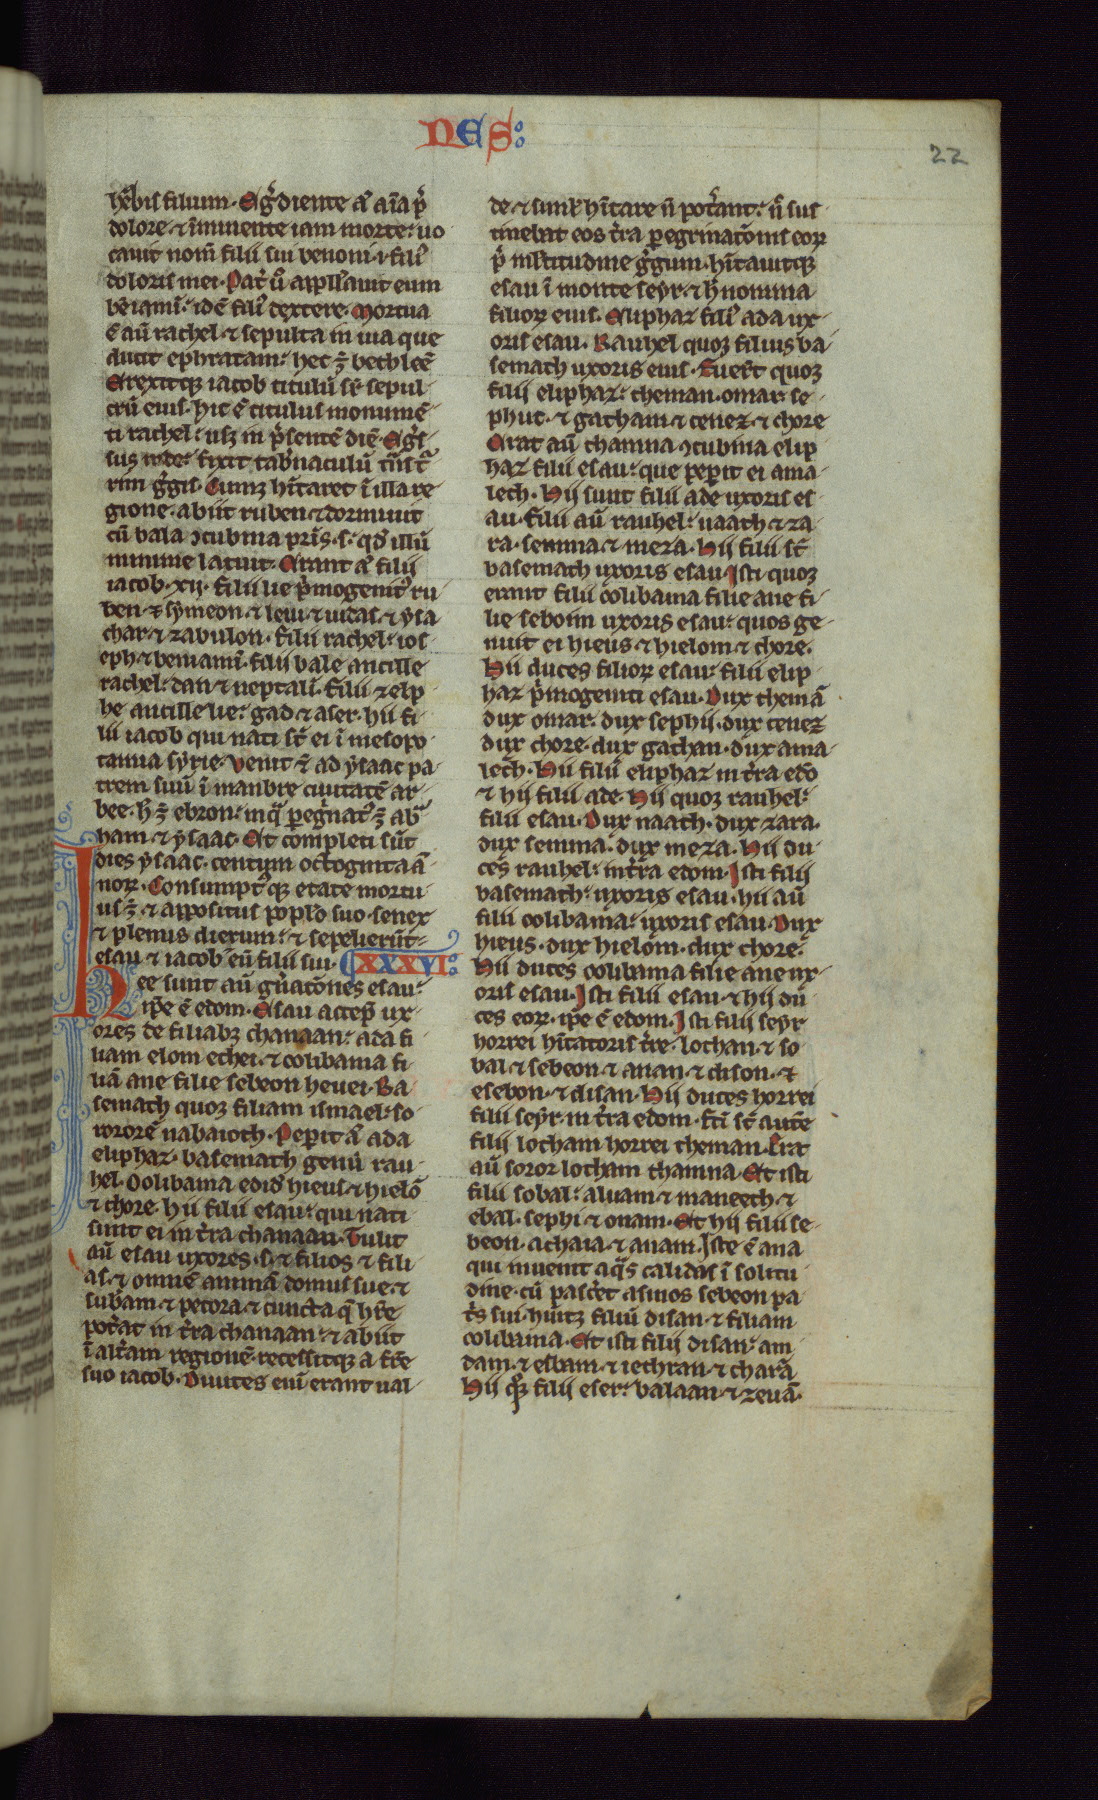 NES:
22
hēbis filium. Eg̃diente aū aīa p̄
dolore ⁊ īminente iam morte: uo
cauit nom̄ filii sui benoni .i. fili᷒
doloris mei. Pat̄ u͛o appll̓auit eum
beniamī: idē fili᷒ dextere. Mortua
ē aū rachel ⁊ sepulta in uia que
ducit ephratam: hec ē bethleē
Erexitq; iacob titulū sr̄ sepul
crū eius. hic ē titulus monumē
ti rachel: usq; in p̄sentē diē. Eg̃s
sus inde: fixit tab̓naculū t̄ns t᷒
rim g̃gis. Cumq; hītaret ī illa re
gione. abiit ruben ⁊ dormiuit
cū bala ꝯcubina pr̄is .s. qd̓ illū
minime latuit. Erant aū filii
iacob .xij. filii lie p̄mogenit᷒ ru
ben ⁊ symeon ⁊ leui ⁊ iudas ⁊ ysa
char ⁊ zabulon. filii rachel: ios
eph ⁊ beniamī. filii bale ancille
rachel: dan ⁊ neptalī. filii zelp
he ancille lie: gad ⁊ aser. hii fi
lii iacob qui nati st̄ ei ī mesopo
tamia syrie. Venit ⁊ ad ysaac pa
trem suū ī manbre ciuitatē ar
bee. h̄ ē ebron: inq̄ pegrinat᷒ ē ab̄
ham ⁊ ysaac. Et completi sūt
dies ysaac. centum octoginta ā
noꝝ. Consumpt᷒q; etate mortu
us ē ⁊ appositus popl̓o suo. senex
⁊ plenus dierum: ⁊ sepelierūt
esau ⁊ iacob eū filii sui. XXXVI:
Hee sunt aū gn̄atōnes esau:
ip̄e ē edom. Esau accep̄ ux
ores de filiab; chanaan: ada fi
liam elom echei. ⁊ oolibama fi
liā ane filie sebeon heuei. Ba
semach quoq; filiam ismael: so
rororē nabaioth. Pep̄it aū ada
eliphaz. basemath genū rau
hel. Oolibama edid̓ hieus ⁊ hielō
⁊ chore. hii filii esau: qui nati
sunt ei in t̄ra chanaan. Tulit
aū esau uxores .s. ⁊ filios ⁊ fili
as. ⁊ omnē animā domus sue. ⁊
sub̄am ⁊ pecora ⁊ cuncta q̄ hr̄e
pot̄at in t̄ra chanaan ⁊ abiit
ī alt̄am regionē. recessitq; a fr̄e
suo iacob. Diuites eni erant ual
de ⁊ simł hītare n̄ pot̄ant: n̄ sus
tinebat eos t̄ra pegrinatōnis eoꝝ
p̄ mltitudine g̃gum. hītauitq;
esau ī monte seyr. ⁊ h̄ nomina
filioꝝ eius. Eliphaz fili᷒ ada ux
oris esau. Rauhel quoq; filius ba
semach uxoris eius. Fuer̄t quoq;
filii eliphaz: theman. omar. se
phut. ⁊ gatham ⁊ cenez. ⁊ chore
Erat aū thamna ꝯcubina elip
haz filii esau: que pep̄it ei ama
lech. Hij sunt filii ade uxoris es
au. filii aū rauhel: naath ⁊ za
ra. semma ⁊ meza. Hij filii st̄
basemach uxoris esau. Isti quoq;
erunt filii oolibama filie ane fi
lie seboim uxoris esau: quos ge
nuit ei hieus ⁊ hielom ⁊ chore.
Hii duces filioꝝ esau: filii elip
haz p̄mogeniti esau. Dux themā
dux omar. dux sephii. dux cenez
dux chore. dux gathan. dux ama
lech. Hii filii eliphaz in t̄ra edō
⁊ hij filii ade. Hij quoq; rauhel:
filii esau. Dux naath. dux zara.
dux semma. dux meza. Hii du
ces rauhel: in t̄ra edom. Isti filij
basemach: uxoris esau. hii aū
filii oolibama: uxoris esau. Dux
hieus. dux hielom. dux chore.
Hii duces oolibama filie ane ux
oris esau. Isti filii esau ⁊ hij du
ces eoꝝ. ip̄e ē edom. Isti filij seyr
horrei hītatoris t̄re. lothan. ⁊ so
bal ⁊ sebeon ⁊ anan ⁊ dison. ⁊
esebon. ⁊ disan. Hij duces horrei
filii seyr. in t̄ra edom. fc̄i st̄ autē
filij lotham horrei theman. Erat
aū soror lotham thamna. Et isti
filii sobal: aluam ⁊ maneech ⁊
ebal. sephi ⁊ onam. Et hij filii se
beon. achaia ⁊ anam. Iste ē ana
qui inuenit aq̄s calidas ī solitu
dine. cū pasc̄et asinos sebeon pa
tr̄s sui. huītq; filiū disan ⁊ filiam
oolibama. Et isti filij disan: am
dam. ⁊ esbam ⁊ iethran ⁊ charā
Hij q᷒q; filij eser: balaan ⁊ zeuā.